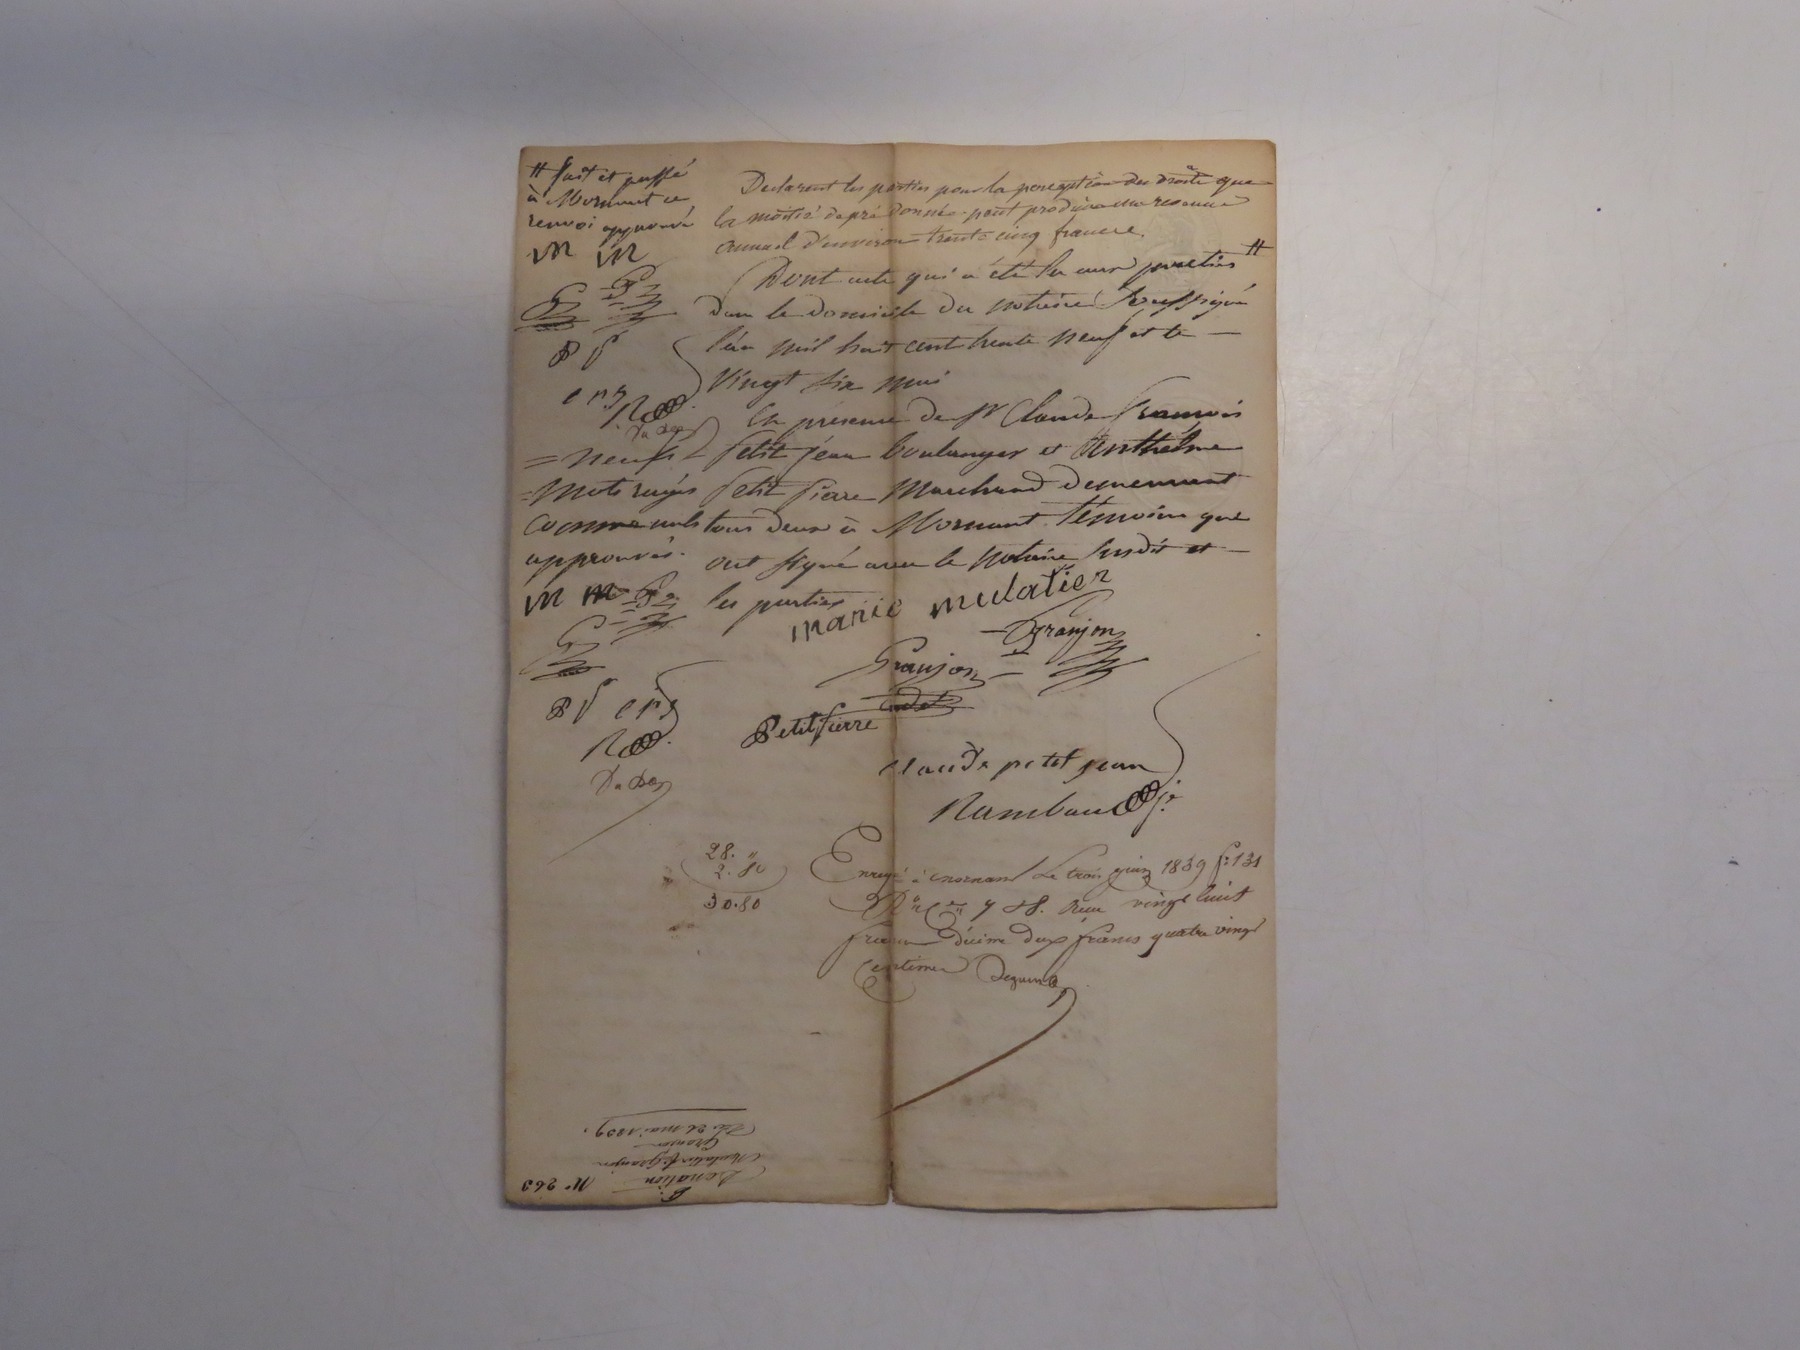 Déclarent les parties pour la perception des droits que
la moitié de pré donnée peut produire un revenu
annuel d'environ trente cinq francs.
Dont acte qui a été lu aux parties #
dans le domicile du notaire soussigné
l'an mil huit cent trente neuf et le —
vingt six mai
En présence de Sr Claude François
Petit jean boulanger et Anthelme
Petit Pierre Marchand demeurant
tous deux à Mornant témoins que
ont signé avec le notaire susdit et —
les parties
# fait et passé
à Mornant ce
renvoi approuvé
M M
G G
P P
c p j
R
= neuf
= mots rayés
comme nuls
approuvés.
M M G
G
P P c p j
R
marie mulatier
Granjon
Granjon
cadet
Petit Pierre
claude petit jean
Rambaud je
28. "
2. 80
30.80
Enregé à mornant le trois juin 1839 fo 131
Ro Ce 7 & 8. Reçu vingt huit
francs décime deux francs quatre vingt
centimes
No 263
Donation
Mulatier fe Granjon
à
Granjon
Du 26 mai 1839.